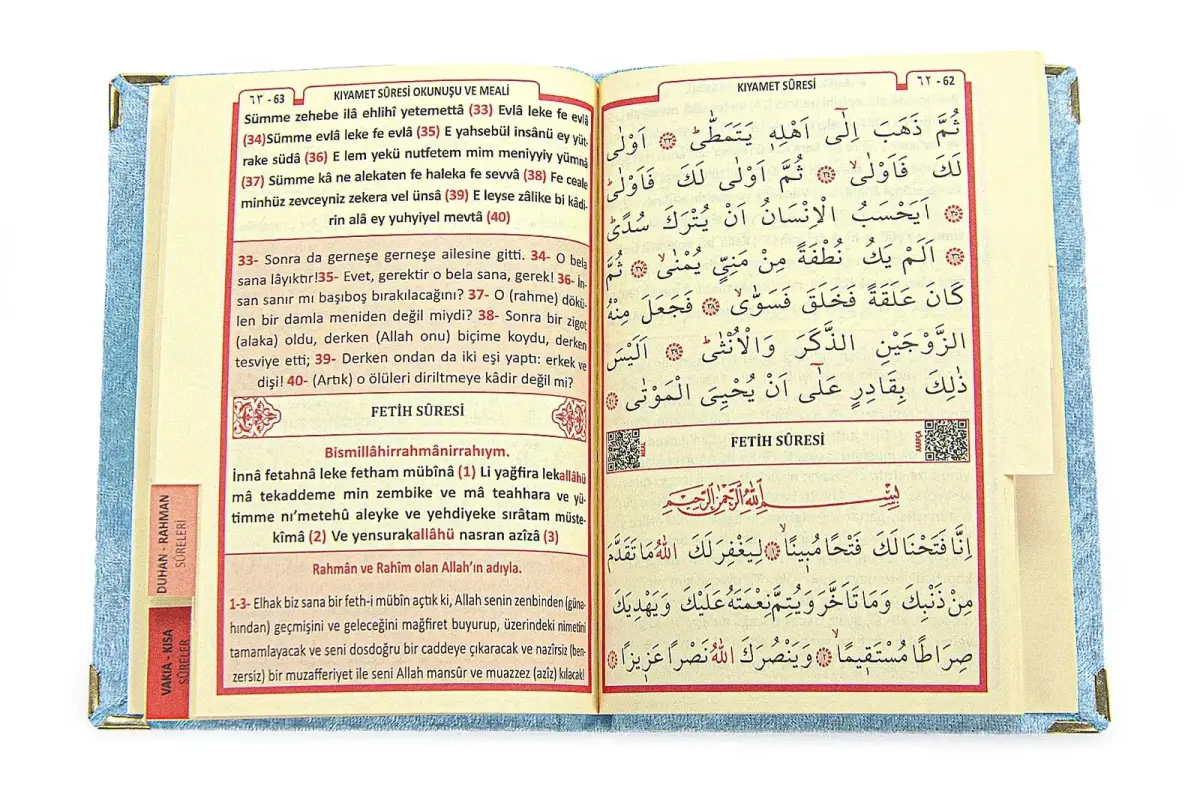 ٦٣ - 63
KIYAMET SÛRESİ OKUNUŞU VE MEALİ
Sümme zehebe ilâ ehlihî yetemettâ (33) Evlâ leke fe evlâ
(34)Sümme evlâ leke fe evlâ (35) E yahsebül insânü ey yüt-
rake südâ (36) E lem yekü nutfetem mim meniyyiy yümnâ
(37) Sümme kâ ne alekaten fe haleka fe sevvâ (38) Fe ceale
minhüz zevceyniz zekera vel ünsâ (39) E leyse zâlike bi kâdi-
rin alâ ey yuhyiyel mevtâ (40)
33- Sonra da gerneşe gerneşe ailesine gitti. 34- O bela
sana lâyıktır!35- Evet, gerektir o bela sana, gerek! 36- İn-
san sanır mı başıboş bırakılacağını? 37- O (rahme) dökü-
len bir damla meniden değil miydi? 38- Sonra bir zigot
(alaka) oldu, derken (Allah onu) biçime koydu, derken
tesviye etti; 39- Derken ondan da iki eşi yaptı: erkek ve
dişi! 40- (Artık) o ölüleri diriltmeye kâdir değil mi?
FETİH SÛRESİ
Bismillâhirrahmânirrahıym.
İnnâ fetahnâ leke fetham mübînâ (1) Li yağfira lekallâhü
mâ tekaddeme min zembike ve mâ teahhara ve yü-
timme nı’metehû aleyke ve yehdiyeke sırâtam müste-
kîmâ (2) Ve yensurakallâhü nasran azîzâ (3)
Rahmân ve Rahîm olan Allah’ın adıyla.
1-3- Elhak biz sana bir feth-i mübîn açtık ki, Allah senin zenbinden (güna-
hından) geçmişini ve geleceğini mağfiret buyurup, üzerindeki nimetini
tamamlayacak ve seni dosdoğru bir caddeye çıkaracak ve nazîrsiz (ben-
zersiz) bir muzafferiyet ile seni Allah mansûr ve muazzez (azîz) kılacak!
DUHAN - RAHMAN
SÛRELERİ
VAKIA - KISA
SÛRELER
KIYAMET SÛRESİ
٦٢ - 62
ثُمَّ ذَهَبَ اِلٰٓى اَهْلِهٖ يَتَمَطّٰىۜ ﴿٣٣﴾ اَوْلٰى
لَكَ فَاَوْلٰىۙ ﴿٣٤﴾ ثُمَّ اَوْلٰى لَكَ فَاَوْلٰىۜ
﴿٣٥﴾ اَيَحْسَبُ الْاِنْسَانُ اَنْ يُتْرَكَ سُدًىۜ
﴿٣٦﴾ اَلَمْ يَكُ نُطْفَةً مِنْ مَنِيٍّ يُمْنٰىۙ ﴿٣٧﴾ ثُمَّ
كَانَ عَلَقَةً فَخَلَقَ فَسَوّٰىۙ ﴿٣٨﴾ فَجَعَلَ مِنْهُ
الزَّوْجَيْنِ الذَّكَرَ وَالْاُنْثٰىۜ ﴿٣٩﴾ اَلَيْسَ
ذٰلِكَ بِقَادِرٍ عَلٰٓى اَنْ يُحْيِيَ الْمَوْتٰى ﴿٤٠﴾
MEAL
FETİH SÛRESİ
ARAPÇA
بِسْمِ اللّٰهِ الرَّحْمٰنِ الرَّحِيمِ
اِنَّا فَتَحْنَا لَكَ فَتْحًا مُبٖينًاۙ ﴿١﴾ لِيَغْفِرَ لَكَ اللّٰهُ مَا تَقَدَّمَ
مِنْ ذَنْبِكَ وَمَا تَاَخَّرَ وَيُتِمَّ نِعْمَتَهُ عَلَيْكَ وَيَهْدِيَكَ
صِرَاطًا مُسْتَقٖيمًاۙ ﴿٢﴾ وَيَنْصُرَكَ اللّٰهُ نَصْرًا عَزٖيزًا ﴿٣﴾